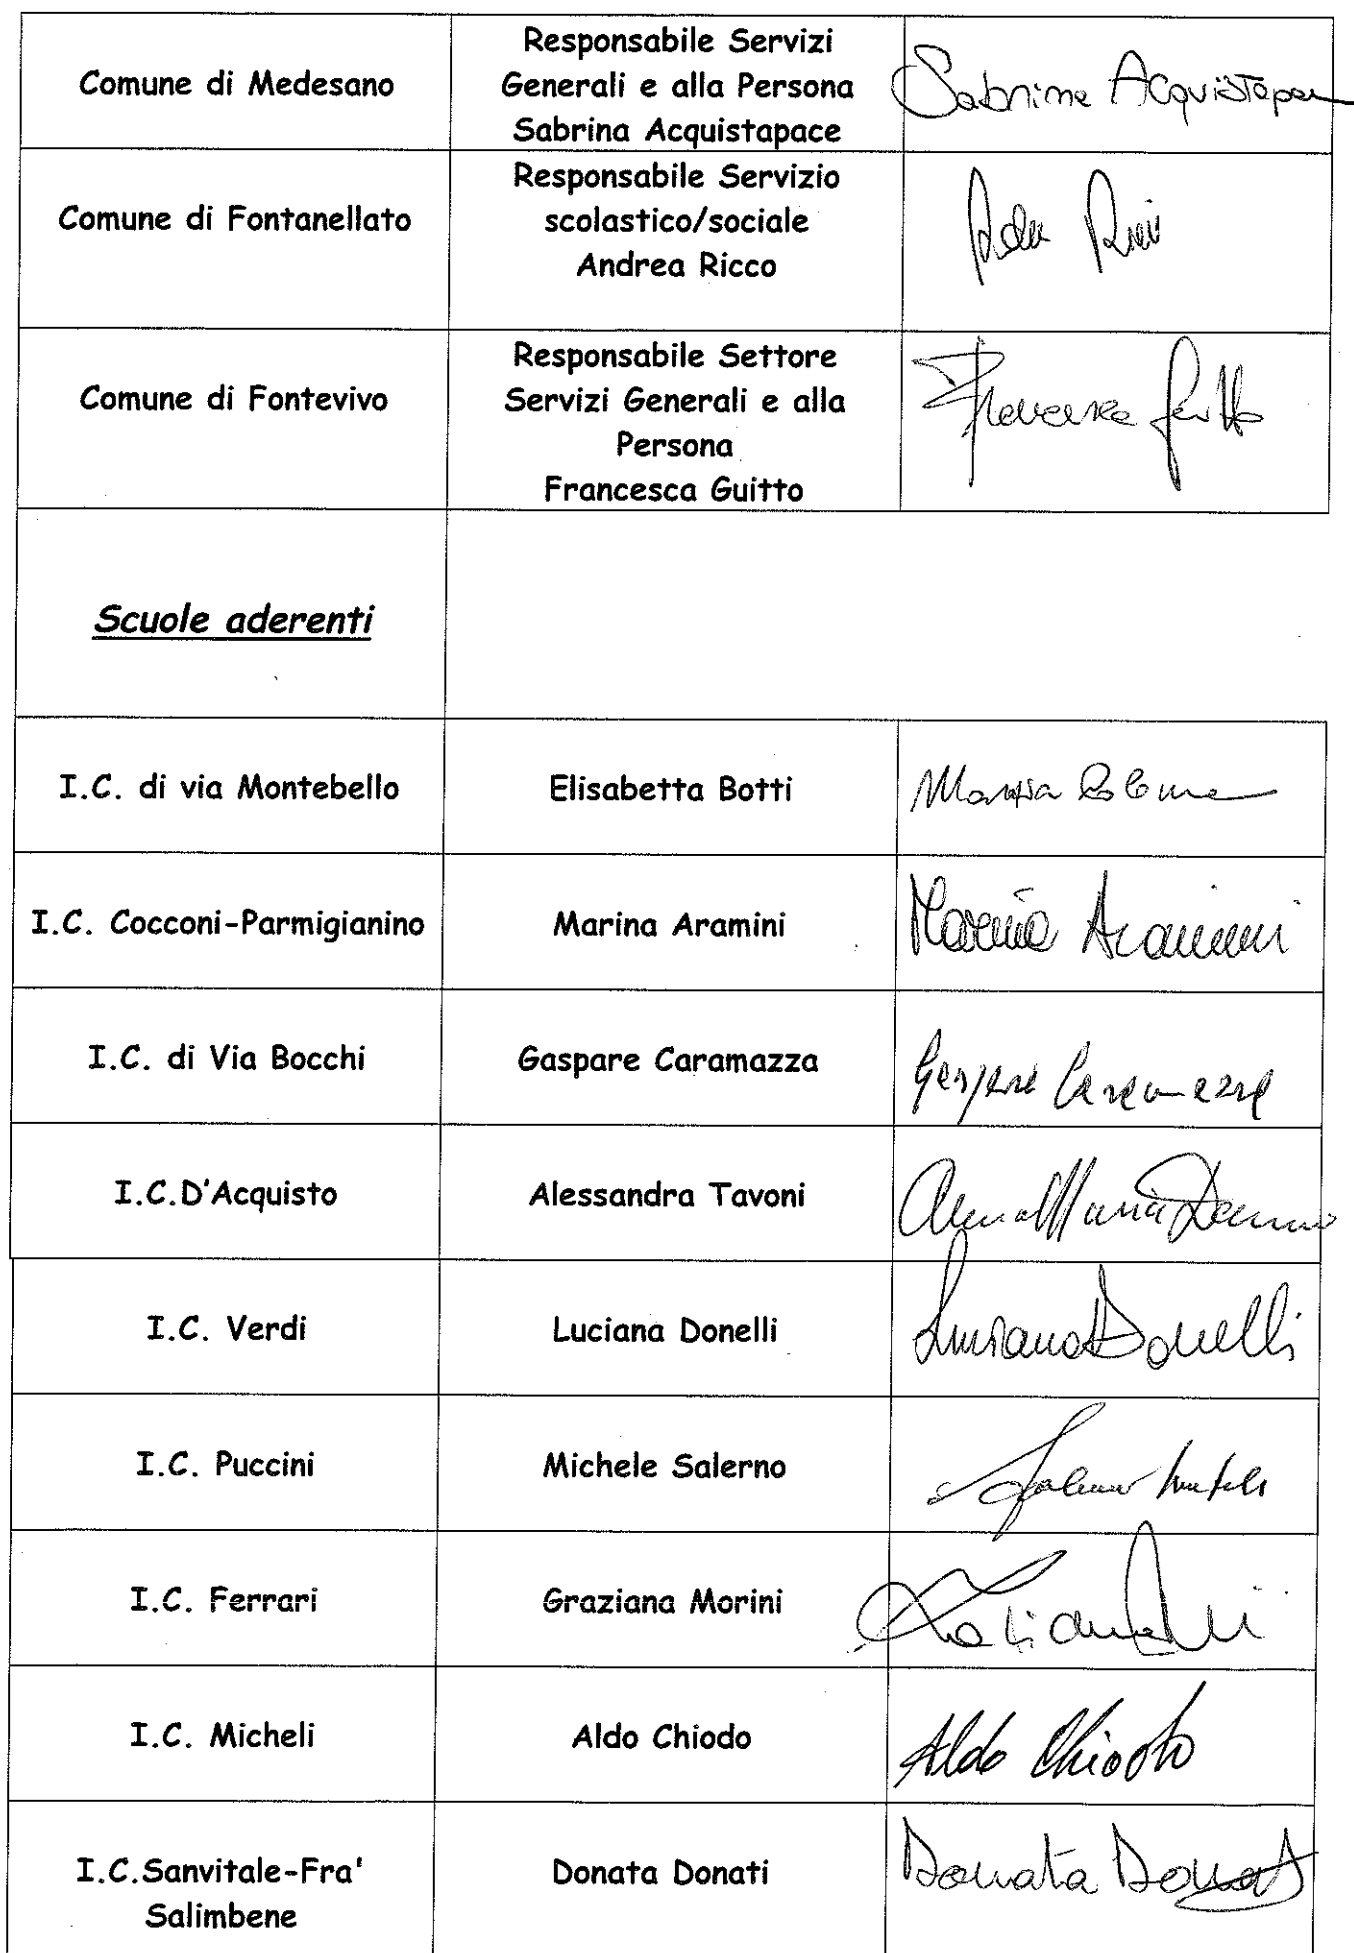 Comune di Medesano
Responsabile Servizi
Generali e alla Persona
Sabrina Acquistapace
Sabrina Acquistapace
Comune di Fontanellato
Responsabile Servizio
scolastico/sociale
Andrea Ricco
Comune di Fontevivo
Responsabile Settore
Servizi Generali e alla
Persona
Francesca Guitto
Francesca Guitto
Scuole aderenti
I.C. di via Montebello
Elisabetta Botti
I.C. Cocconi-Parmigianino
Marina Aramini
Marina Aramini
I.C. di Via Bocchi
Gaspare Caramazza
Gaspare Caramazza
I.C.D'Acquisto
Alessandra Tavoni
I.C. Verdi
Luciana Donelli
Luciana Donelli
I.C. Puccini
Michele Salerno
I.C. Ferrari
Graziana Morini
I.C. Micheli
Aldo Chiodo
Aldo Chiodo
I.C.Sanvitale-Fra'
Salimbene
Donata Donati
Donata Donati